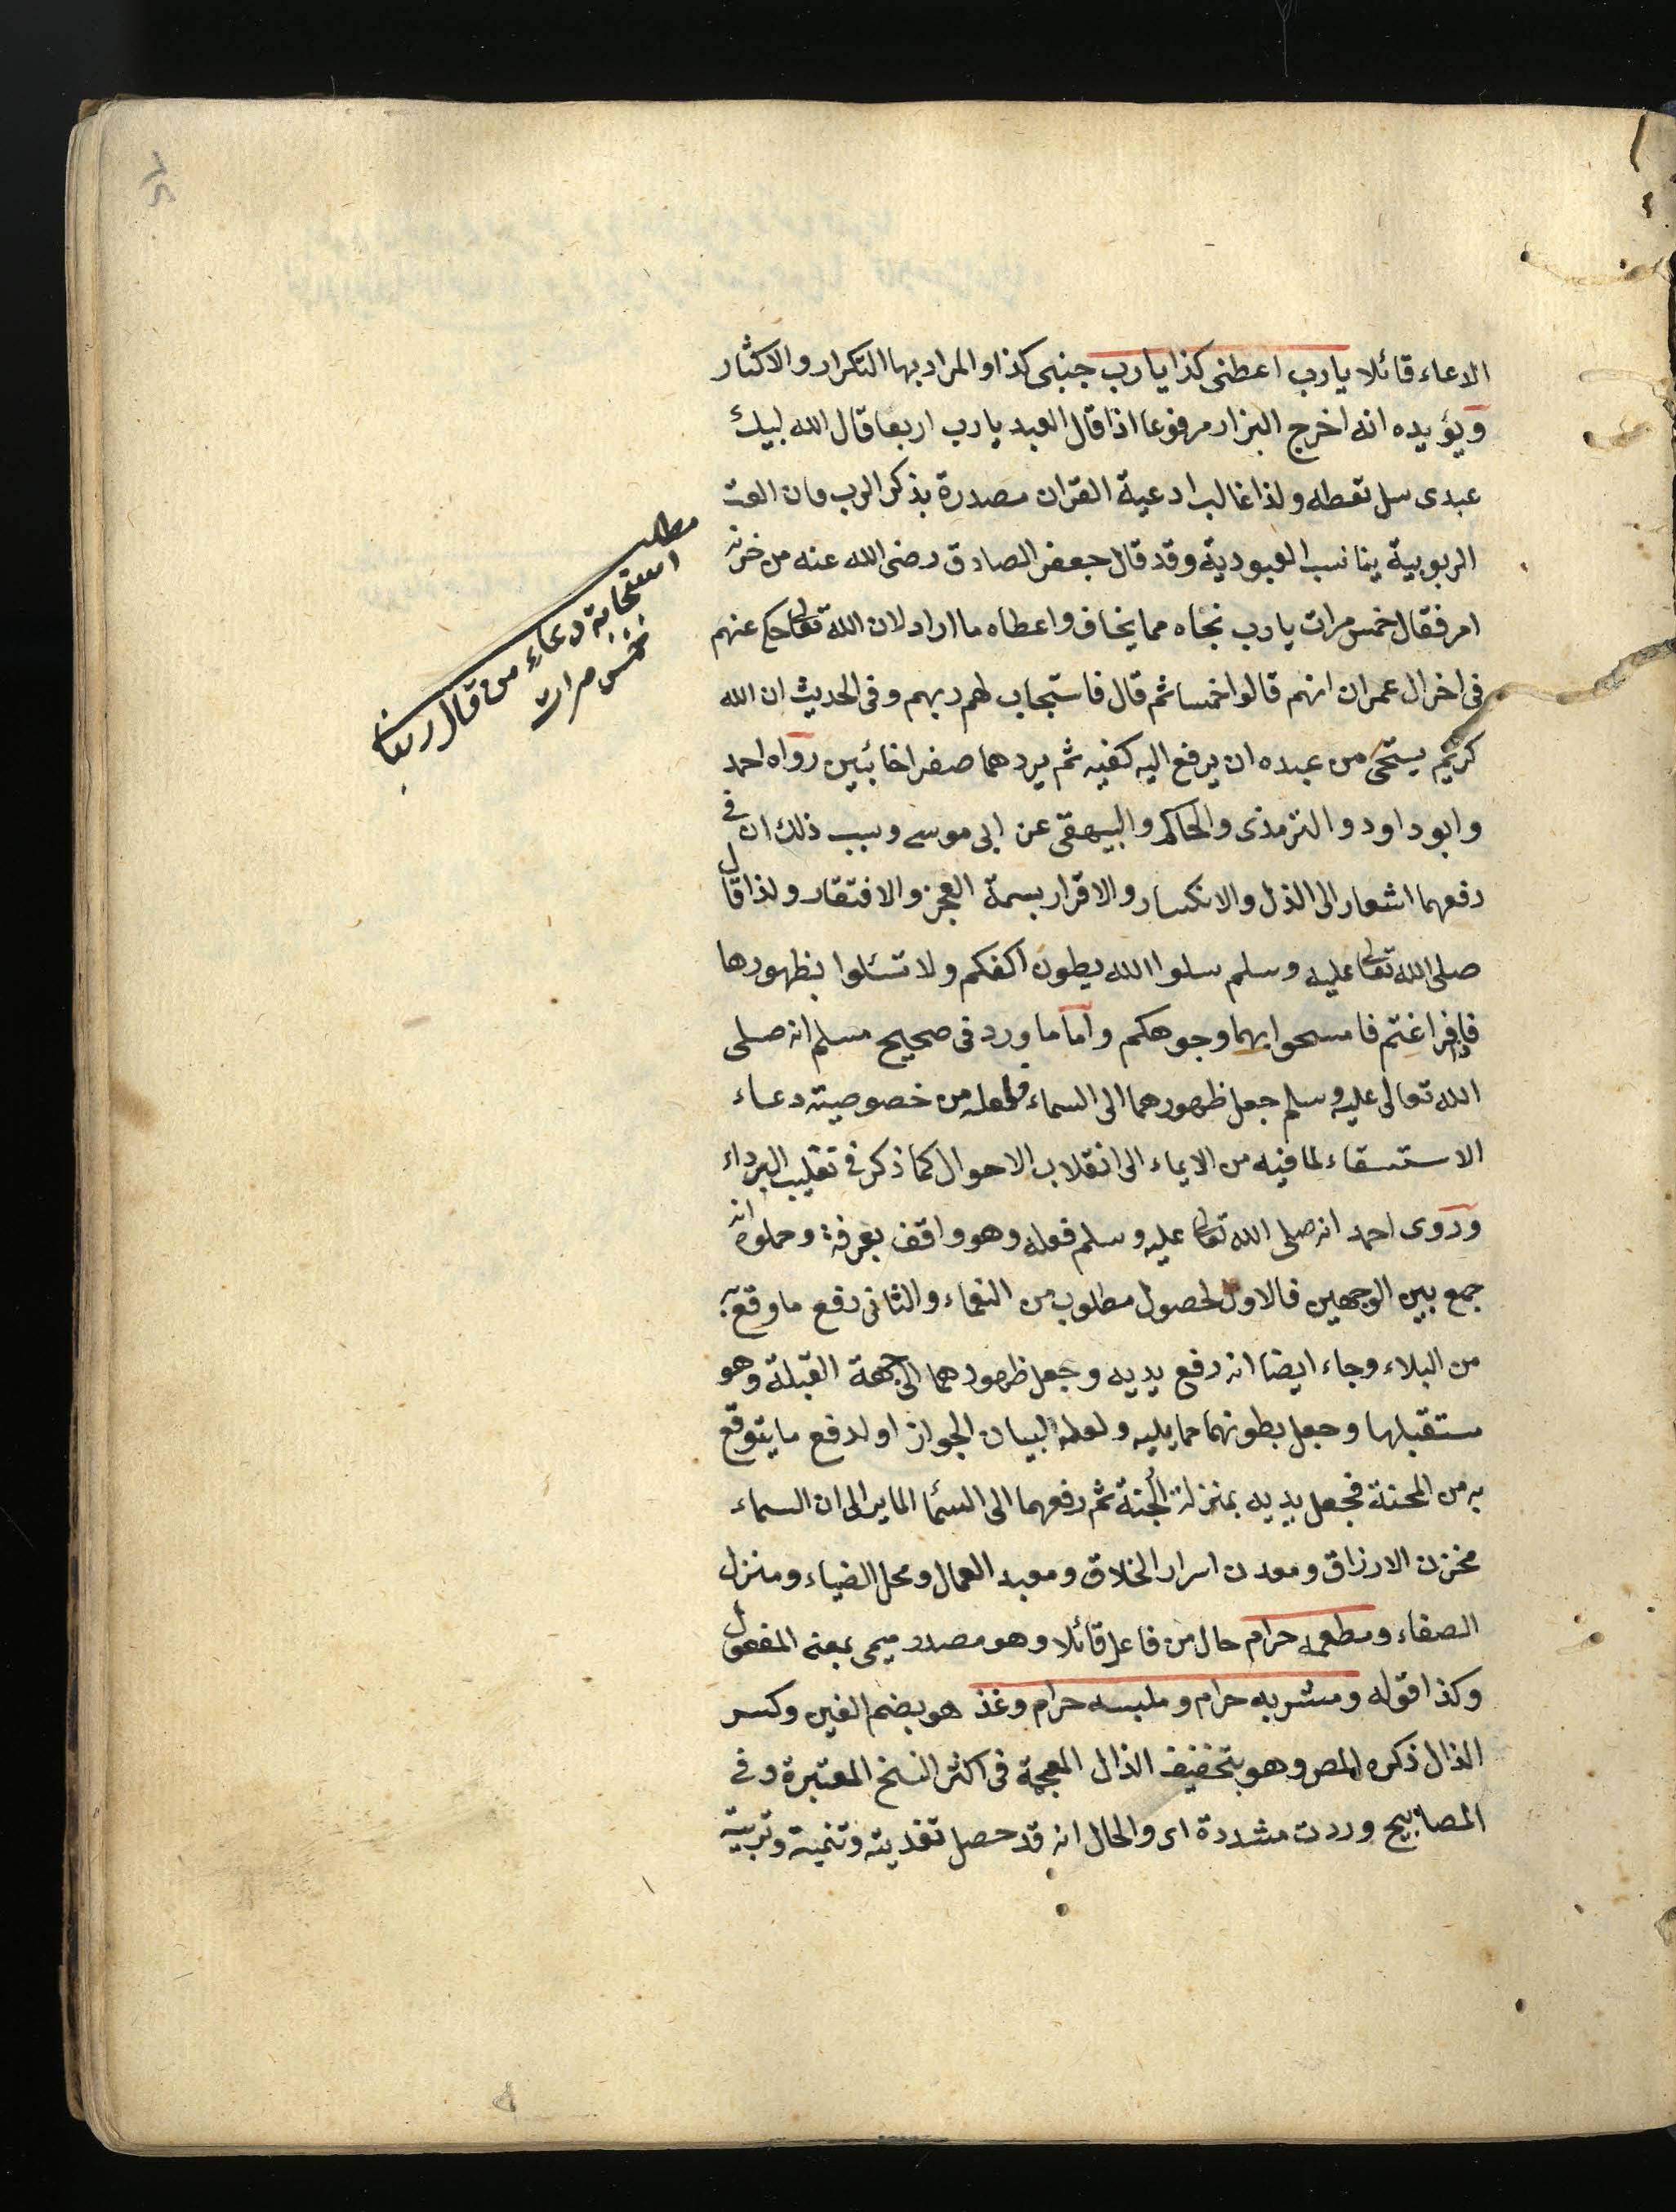 الدعاء قائلا يارب اعطنى كذا يارب جنبنى كذا والمراد بها التكرار والاكثار
ويؤيده انه اخرج البزار مرفوعا اذا قال العبد يارب اربعا قال الله لبيك
عبدى سل تعطه ولذا غالب ادعية القران مصدرة بذكر الرب فان العت
الربوبية يناسب العبودية وقد قال جعفر الصادق رضى الله عنه من حزنه
امر فقال خمس مرات يارب نجاه مما يخاف واعطاه ما اراد لان الله تعالى حكى عنهم
فى اخر ال عمران انهم قالوا خمسا ثم قال فاستجاب لهم ربهم وفى الحديث ان الله
كريم يستحى من عبده ان يرفع اليه كفيه ثم يردهما صفرا خائبين رواه احمد
وابو داود والترمذى والحاكم والبيهقى عن ابى موسى وسبب ذلك ان فى
رفعهما اشعار الى الذل والانكسار والاقرار بسمة العجز والافتقار ولذا قال
صلى الله تعالى عليه وسلم سلوا الله ببطون اكفكم ولا تسئلوا بظهورها
فاذا فراغتم فامسحوا بهما وجوهكم واما ما ورد فى صحيح مسلم انه صلى
الله تعالى عليه وسلم جعل ظهورهما الى السماء فلعله من خصوصيته دعاء
الاستسقاء لما فيه من الايماء الى انقلاب الاحوال كما ذكر فى تقليب الرداء
وروى احمد انه صلى الله تعالى عليه وسلم فعله وهو واقف بعرفة وحملوه انه
جمع بين الوجهين فالاول لحصول مطلوب من النعماء والثانى رفع ما وقع به
من البلاء وجاء ايضا انه رفع يديه وجعل ظهورهما الى جهة القبلة وهو
مستقبلها وجعل بطونهما مما يليه ولعله لبيان الجواز او لدفع ما يتوقع
به من المحنة فجعل يديه بمنزلة الجنة ثم رفعهما الى السما الما ير الى ان السماء
مخزن الارزاق ومعدن اسرار الخلاق ومعبد العمال ومحل الضياء ومنزل
الصفاء ومطعمه حرام حال من فاعل قائلا وهو مصدر ميمى بمعنى المفعول
وكذا قوله ومشربه حرام وملبسه حرام وغذى هو بضم الغين وكسر
الذال ذكره المص وهو بتخفيف الذال المعجمة فى اكثر النسخ المعتبرة وفى
المصابيح وردت مشددة اى والحال انه قد حصل تغذيته وتنميته وتربيته
مطلب
استجابة دعاء من قال ربنا
خمس مرات